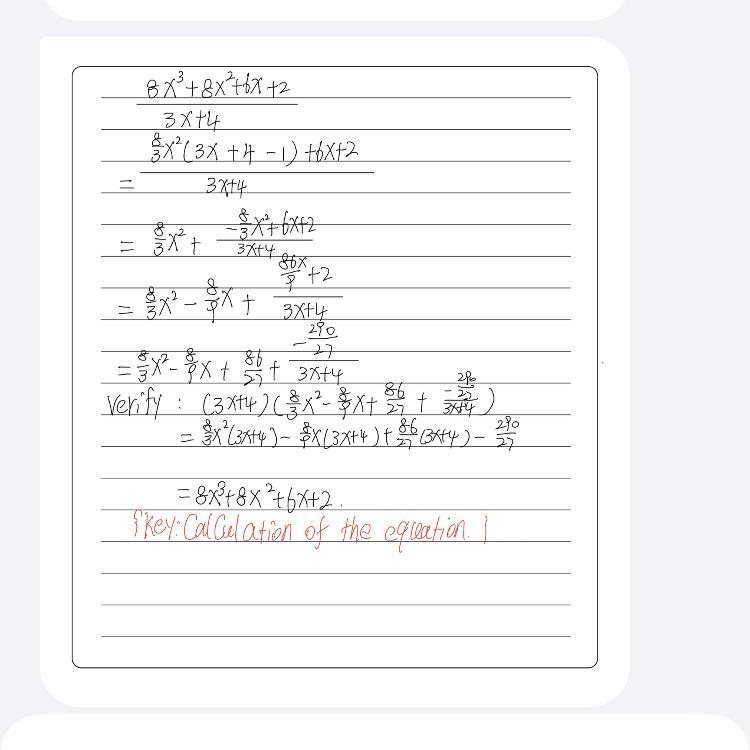 8x³+8x²+6x+2 / 3x+4
= 8/3x²(3x+4-1)+6x+2 / 3x+4
= 8/3x² + -8/3x²+6x+2 / 3x+4
= 8/3x² - 8/9x + 86x/9+2 / 3x+4
= 8/3x² - 8/9x + 86/27 + -290/27 / 3x+4
Verify : (3x+4)(8/3x² - 8/9x + 86/27 + -290/27 / 3x+4)
= 8/3x²(3x+4) - 8/9x(3x+4) + 86/27(3x+4) - 290/27
= 8x³+8x²+6x+2.
{key: Calculation of the equation.}